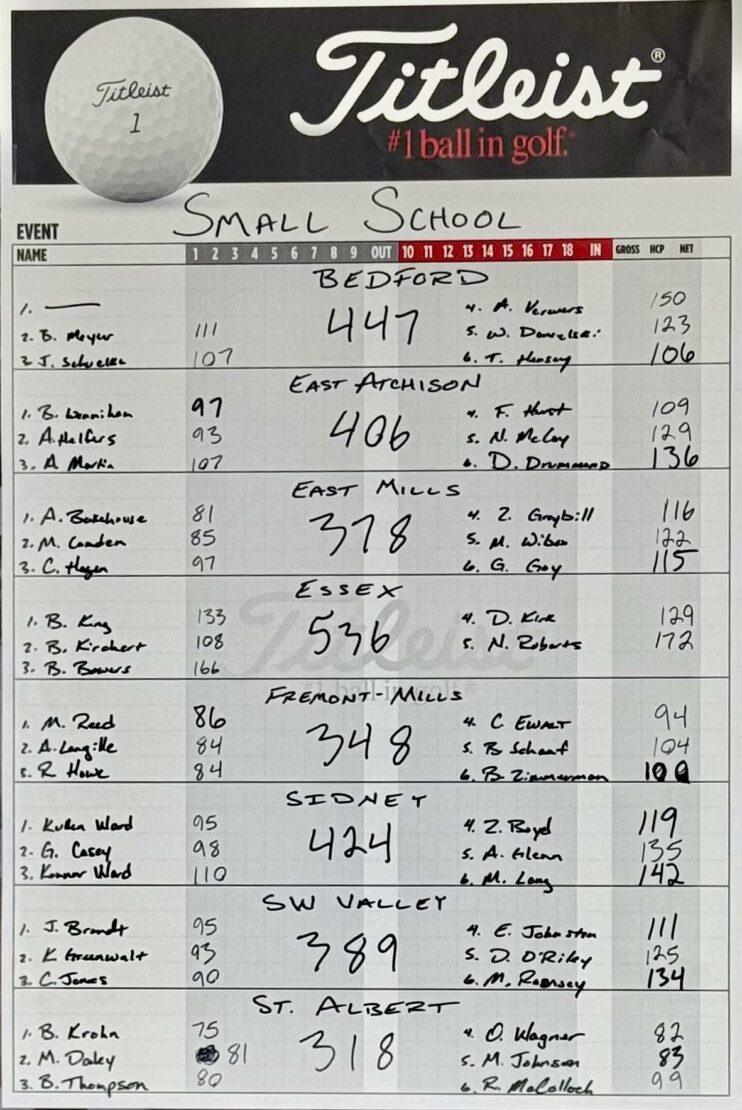 Titleist
1
Titleist®
#1 ball in golf.®
EVENT SMALL SCHOOL
NAME 1 2 3 4 5 6 7 8 9 OUT 10 11 12 13 14 15 16 17 18 IN GROSS HCP NET
BEDFORD
1. — 4. A. Verwers 150
2. B. Meyer 111 447 5. W. 123
3 J. 107 6. T. Hensey 106
EAST ATCHISON
1. B. 97 4. F. Hurst 109
2. A. Helfers 93 406 5. N. McCoy 129
3. A Martin 107 6. D. Drummond 136
EAST MILLS
1. A. Bakehouse 81 4. Z. Graybill 116
2. M. Camden 85 378 5. M. 122
3. C. Hagen 97 6. G. Goy 115
ESSEX
1. B. King 133 4. D. Kirk 129
2. B. Kirchert 108 536 5. N. Roberts 172
3. B. Bowers 166
FREMONT-MILLS
1. M. Reed 86 4. C Ewalt 94
2. A. Langille 84 348 5. B Schaaf 104
3. R Howe 84 6. B. Zimmerman 100
SIDNEY
1. Kuden Ward 95 4. Z. Boyd 119
2. G. Casey 98 424 5. A. Glenn 135
3. Konnor Ward 110 6. M. Lang 142
SW VALLEY
1. J. Brandt 95 4. E. Johnston 111
2. K Greenwalt 93 389 5. D. O'Riley 125
3. C. Jones 90 6. M. Ramsey 134
ST. ALBERT
1. B. Krohn 75 4. O. Wagner 82
2. M. Daley 81 318 5. M. Johnson 83
3. B. Thompson 80 6. R. McColloch 99